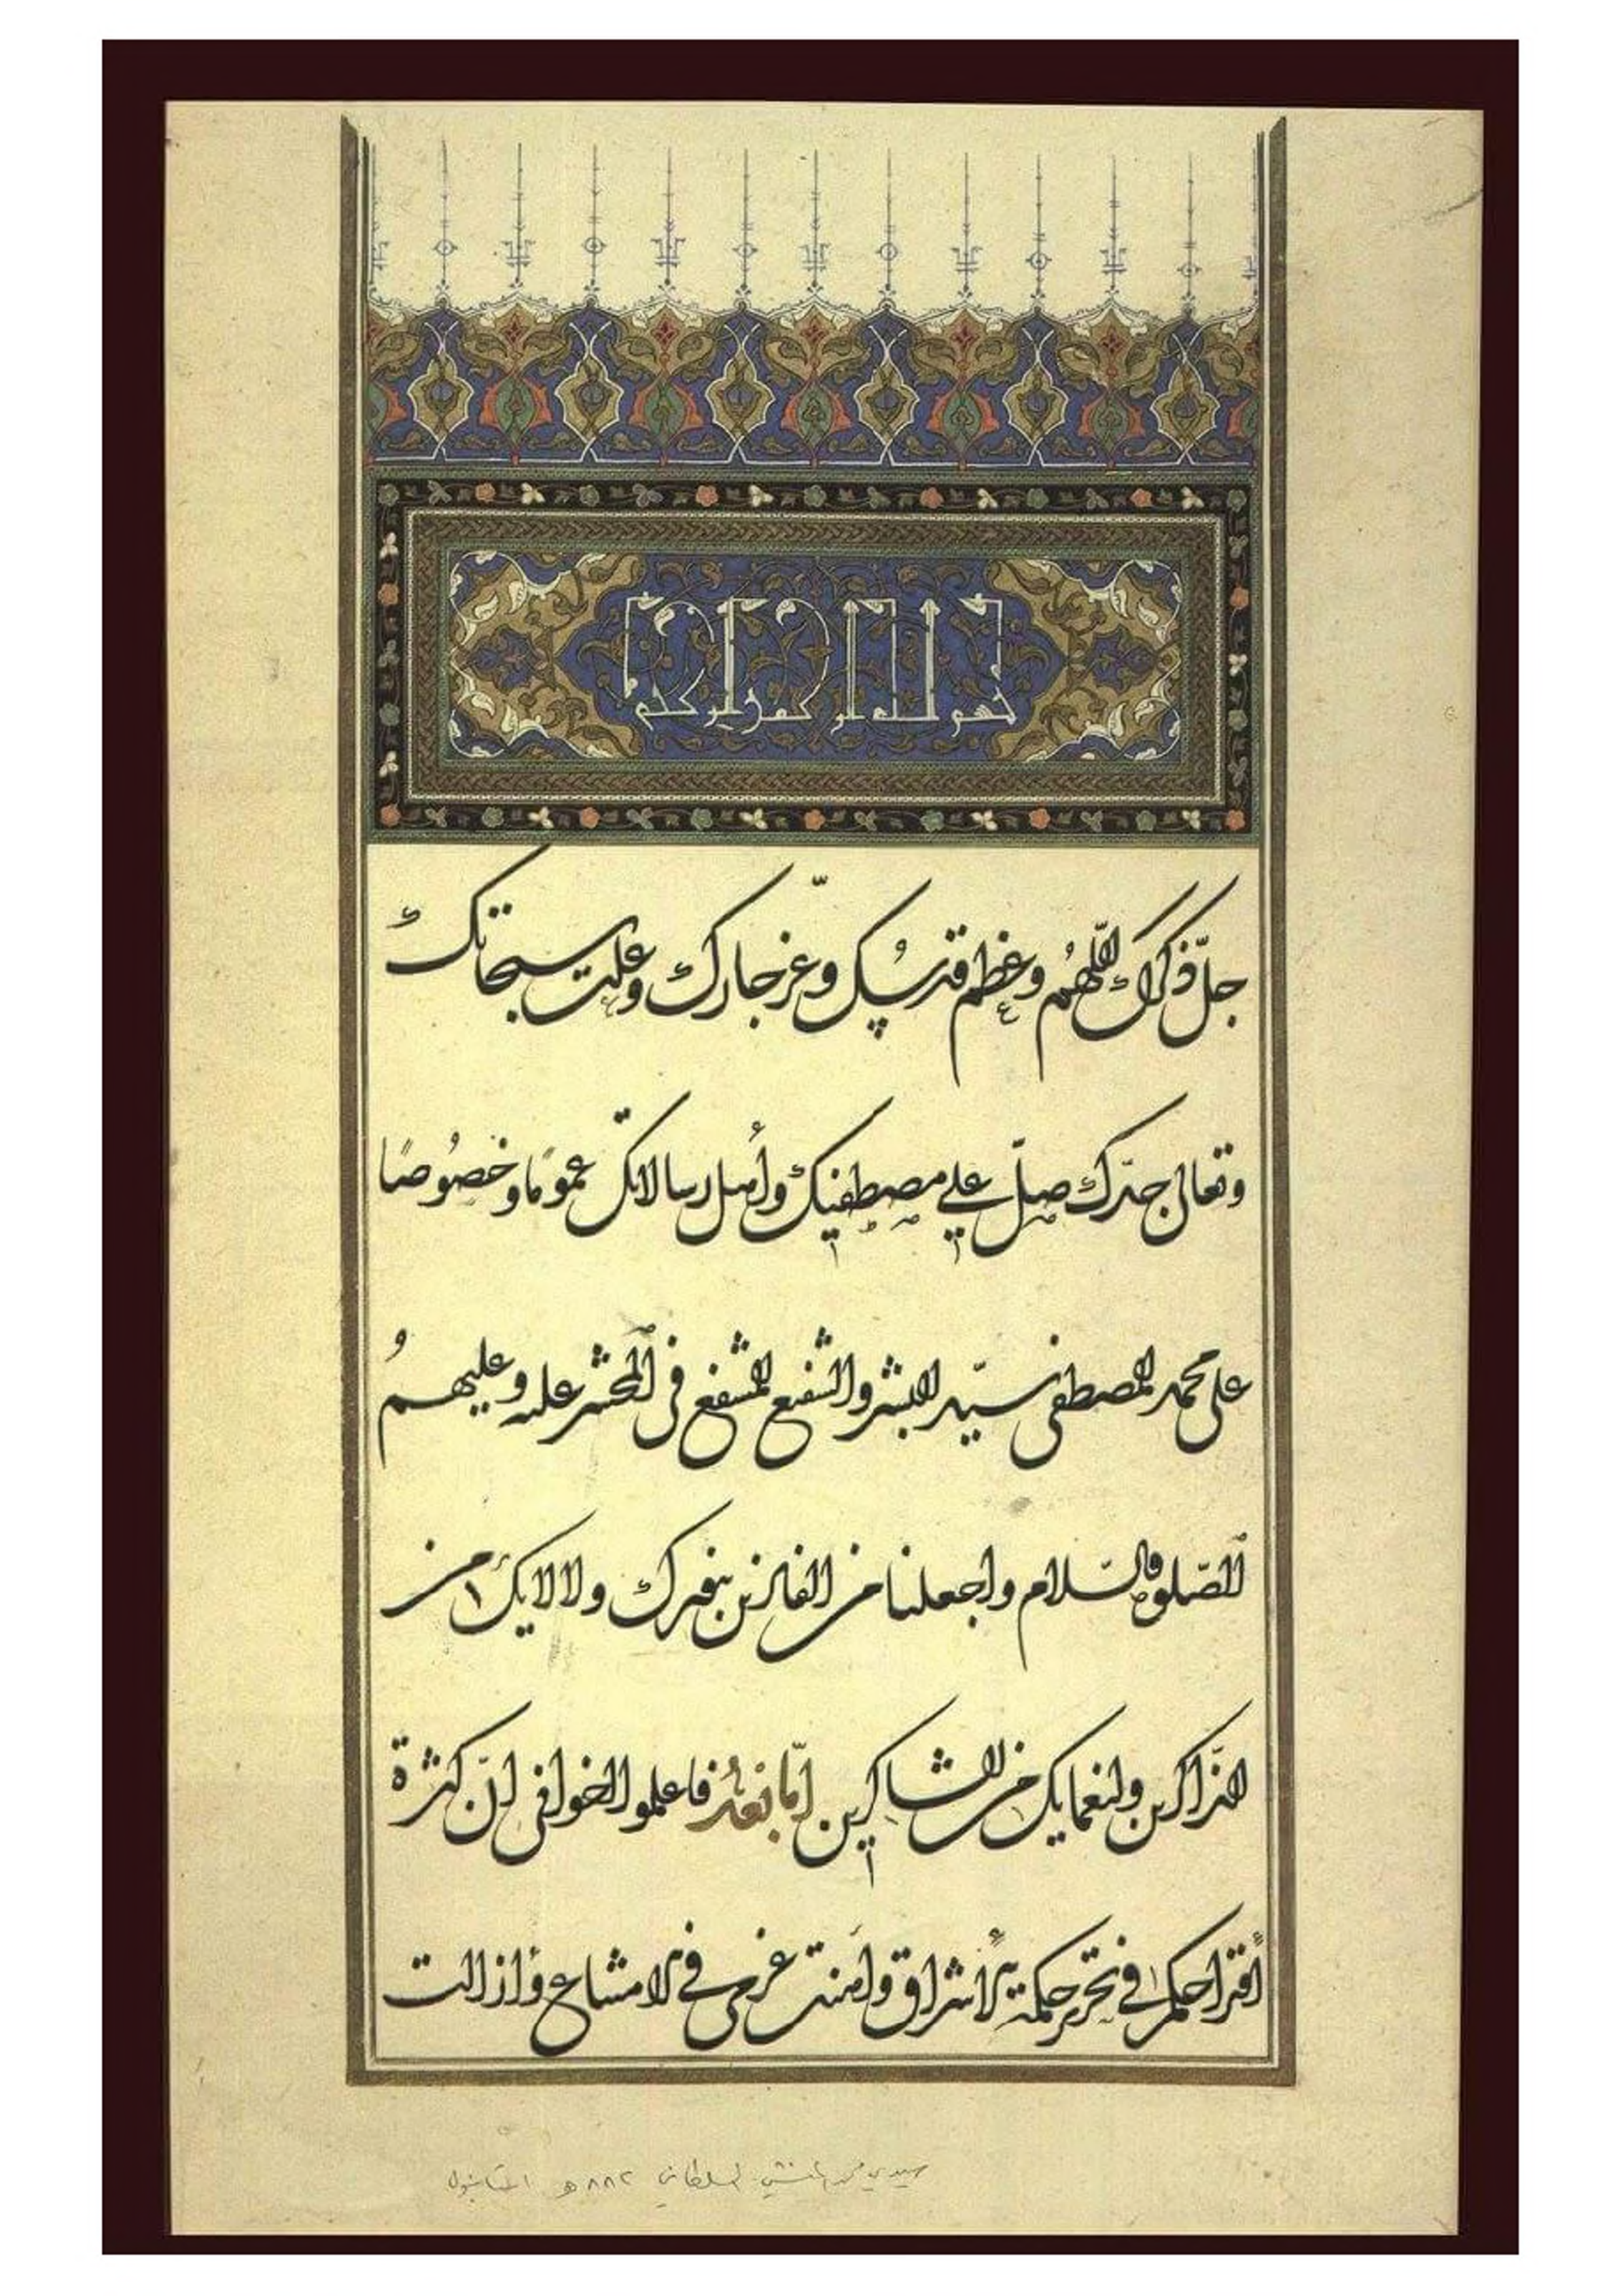 بسم الله الرحمن الرحيم
جل ذكرك اللهم وعظم قدسك وعز جارك وعلت سبحاتك
وتعالى جدك صل على مصطفيك وأهل رسالاتك عموما وخصوصا
على محمد المصطفى سيد البشر والشفيع المشفع في المحشر عليه وعليهم
الصلوة والسلام واجعلنا من الفائزين بنورك ولالايك من
الذاكرين ولنعمايك من الشاكرين اما بعد فاعلموا اخواني ان كثرة
اقتراحكم في تحرير حكمة الاشراق وأهنت عزمي في الامتناع وأزالت
سيدي محمد المنشي السلطاني ٨٨٢ هـ استانبول